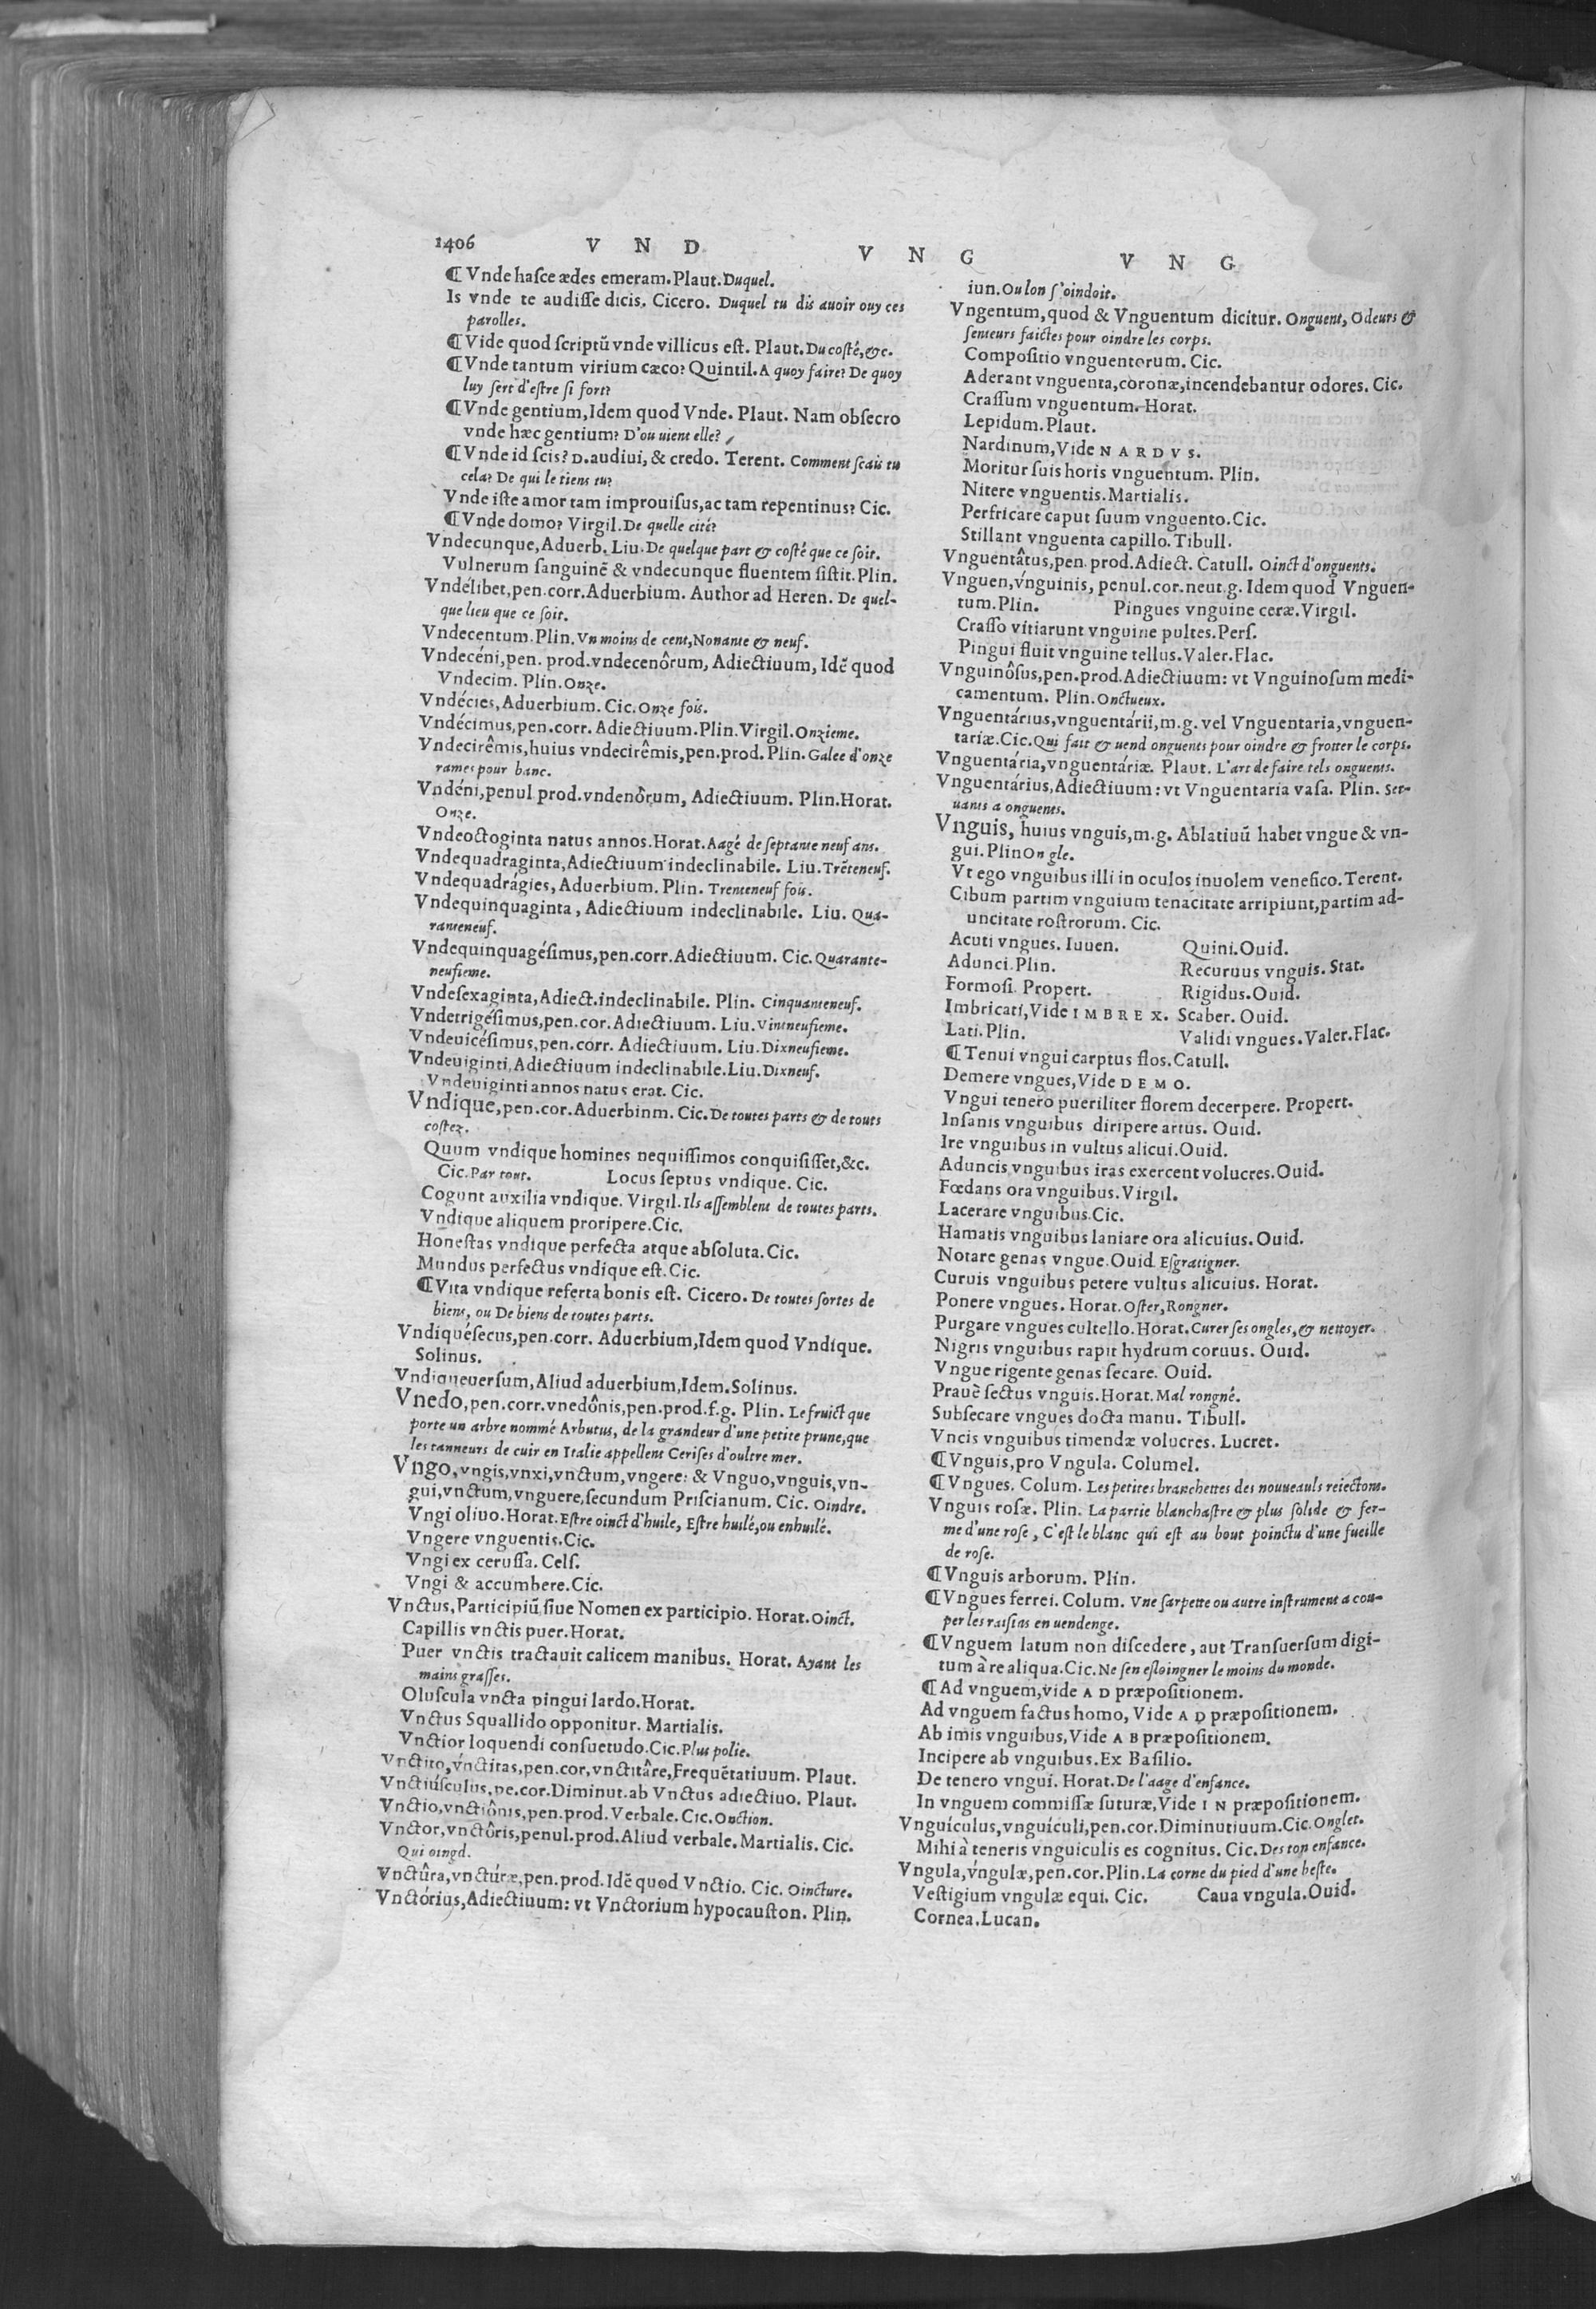 1406 V N D V N G V N G
¶ Vnde hasce ædes emeram. Plaut. Duquel.
Is vnde te audisse dicis. Cicero. Duquel tu dis auoir ouy ces
parolles.
¶ Vide quod scriptũ vnde villicus est. Plaut. Du costé, &c.
¶ Vnde tantum virium cæco? Quintil. A quoy faire? De quoy
luy sert d'estre si fort?
¶ Vnde gentium, Idem quod Vnde. Plaut. Nam obsecro
vnde hæc gentium? D'ou uient elle?
¶ Vnde id scis? D. audiui, & credo. Terent. Comment scais tu
cela? De qui le tiens tu?
Vnde iste amor tam improuisus, ac tam repentinus? Cic.
¶ Vnde domo? Virgil. De quelle cité?
Vndecunque, Aduerb. Liu. De quelque part & costé que ce soit.
Vulnerum sanguinẽ & vndecunque fluentem sistit. Plin.
Vndélibet, pen. corr. Aduerbium. Author ad Heren. De quel-
que lieu que ce soit.
Vndecentum. Plin. Vn moins de cent, Nonante & neuf.
Vndecéni, pen. prod. vndecenôrum, Adiectiuum, Idẽ quod
Vndecim. Plin. Onze.
Vndécies, Aduerbium. Cic. Onze fois.
Vndécimus, pen. corr. Adiectiuum. Plin. Virgil. Onzieme.
Vndecirêmis, huius vndecirêmis, pen. prod. Plin. Galee d'onze
rames pour banc.
Vndéni, penul prod. vndenôrum, Adiectiuum. Plin. Horat.
Onze.
Vndeoctoginta natus annos. Horat. Aagé de septante neuf ans.
Vndequadraginta, Adiectiuum indeclinabile. Liu. Trẽteneuf.
Vndequadrágies, Aduerbium. Plin. Trenteneuf fois.
Vndequinquaginta, Adiectiuum indeclinabile. Liu. Qua-
ranteneuf.
Vndequinquagésimus, pen. corr. Adiectiuum. Cic. Quarante-
neufieme.
Vndesexaginta, Adiect. indeclinabile. Plin. Cinquanteneuf.
Vndetrigésimus, pen. cor. Adiectiuum. Liu. Vintneufieme.
Vndeuicésimus, pen. corr. Adiectiuum. Liu. Dixneufieme.
Vndeuiginti, Adiectiuum indeclinabile. Liu. Dixneuf.
Vndeuiginti annos natus erat. Cic.
Vndique, pen. cor. Aduerbinm. Cic. De toutes parts & de touts
costez.
Quum vndique homines nequissimos conquisisset, &c.
Cic. Par tout. Locus septus vndique. Cic.
Cogunt auxilia vndique. Virgil. Ils assemblent de toutes parts.
Vndique aliquem proripere. Cic.
Honestas vndique perfecta atque absoluta. Cic.
Mundus perfectus vndique est. Cic.
¶ Vita vndique referta bonis est. Cicero. De toutes sortes de
biens, ou De biens de toutes parts.
Vndiquésecus, pen. corr. Aduerbium, Idem quod Vndique.
Solinus.
Vndiqueuersum, Aliud aduerbium, Idem. Solinus.
Vnedo, pen. corr. vnedônis, pen. prod. f. g. Plin. Le fruict que
porte un arbre nommé Arbutus, de la grandeur d'une petite prune, que
les tanneurs de cuir en Italie appellent Cerises d'oultre mer.
Vngo, vngis, vnxi, vnctum, vngere: & Vnguo, vnguis, vn-
gui, vnctum, vnguere, secundum Priscianum. Cic. Oindre.
Vngi oliuo. Horat. Estre oinct d'huile, Estre huilé, ou enhuilé.
Vngere vnguentis. Cic.
Vngi ex cerussa. Cels.
Vngi & accumbere. Cic.
Vnctus, Participiũ siue Nomen ex participio. Horat. Oinct.
Capillis vnctis puer. Horat.
Puer vnctis tractauit calicem manibus. Horat. Ayant les
mains grasses.
Oluscula vncta pingui lardo. Horat.
Vnctus Squallido opponitur. Martialis.
Vnctior loquendi consuetudo. Cic. Plus polie.
Vnctito, vnctitas, pen. cor, vnctitâre, Frequẽtatiuum. Plaut.
Vnctiúsculus, pe. cor. Diminut. ab Vnctus adiectiuo. Plaut.
Vnctio, vnctiônis, pen. prod. Verbale. Cic. Onction.
Vnctor, vnctôris, penul. prod. Aliud verbale. Martialis. Cic.
Qui oingd.
Vnctûra, vnctúræ, pen. prod. Idẽ quod Vnctio. Cic. Oincture.
Vnctórius, Adiectiuum: vt Vnctorium hypocauston. Plin.
iun. Ou lon s'oindoit.
Vngentum, quod & Vnguentum dicitur. Onguent, Odeurs &
senteurs faictes pour oindre les corps.
Compositio vnguentorum. Cic.
Aderant vnguenta, coronæ, incendebantur odores. Cic.
Crassum vnguentum. Horat.
Lepidum. Plaut.
Nardinum, Vide NARDVS.
Moritur suis horis vnguentum. Plin.
Nitere vnguentis. Martialis.
Perfricare caput suum vnguento. Cic.
Stillant vnguenta capillo. Tibull.
Vnguentâtus, pen. prod. Adiect. Catull. Oinct d'onguents.
Vnguen, vnguinis, penul. cor. neut. g. Idem quod Vnguen-
tum. Plin. Pingues vnguine ceræ. Virgil.
Crasso vitiarunt vnguine pultes. Pers.
Pingui fluit vnguine tellus. Valer. Flac.
Vnguinôsus, pen. prod. Adiectiuum: vt Vnguinosum medi-
camentum. Plin. Onctueux.
Vnguentárius, vnguentárii, m. g. vel Vnguentaria, vnguen-
tariæ. Cic. Qui fait & uend onguents pour oindre & frotter le corps.
Vnguentária, vnguentáriæ. Plaut. L'art de faire tels onguents.
Vnguentárius, Adiectiuum: vt Vnguentaria vasa. Plin. Ser-
uants a onguents.
Vnguis, huius vnguis, m. g. Ablatiuũ habet vngue & vn-
gui. Plin Ongle.
Vt ego vnguibus illi in oculos inuolem venefico. Terent.
Cibum partim vnguium tenacitate arripiunt, partim ad-
uncitate rostrorum. Cic.
Acuti vngues. Iuuen. Quini. Ouid.
Adunci. Plin. Recuruus vnguis. Stat.
Formosi. Propert. Rigidus. Ouid.
Imbricati, Vide IMBREX. Scaber. Ouid.
Lati. Plin. Validi vngues. Valer. Flac.
¶ Tenui vngui carptus flos. Catull.
Demere vngues, Vide DEMO.
Vngui tenero pueriliter florem decerpere. Propert.
Insanis vnguibus diripere artus. Ouid.
Ire vnguibus in vultus alicui. Ouid.
Aduncis vnguibus iras exercent volucres. Ouid.
Fœdans ora vnguibus. Virgil.
Lacerare vnguibus. Cic.
Hamatis vnguibus laniare ora alicuius. Ouid.
Notare genas vngue. Ouid. Esgratigner.
Curuis vnguibus petere vultus alicuius. Horat.
Ponere vngues. Horat. Oster, Rongner.
Purgare vngues cultello. Horat. Curer ses ongles, & nettoyer.
Nigris vnguibus rapit hydrum coruus. Ouid.
Vngue rigente genas secare. Ouid.
Prauè sectus vnguis. Horat. Mal rongné.
Subsecare vngues docta manu. Tibull.
Vncis vnguibus timendæ volucres. Lucret.
¶ Vnguis, pro Vngula. Columel.
¶ Vngues. Colum. Les petites branchettes des nouueauls reiectons.
Vnguis rosæ. Plin. La partie blanchastre & plus solide & fer-
me d'une rose, C'est le blanc qui est au bout poinctu d'une fueille
de rose.
¶ Vnguis arborum. Plin.
¶ Vngues ferrei. Colum. Vne sarpette ou autre instrument a cou-
per les raisins en uendenge.
¶ Vnguem latum non discedere, aut Transuersum digi-
tum à re aliqua. Cic. Ne sen esloingner le moins du monde.
¶ Ad vnguem, vide AD præpositionem.
Ad vnguem factus homo, Vide AD præpositionem.
Ab imis vnguibus, Vide AB præpositionem.
Incipere ab vnguibus. Ex Basilio.
De tenero vngui. Horat. De l'aage d'enfance.
In vnguem commissæ suturæ, Vide IN præpositionem.
Vnguículus, vnguículi, pen. cor. Diminutiuum. Cic. Onglet.
Mihi à teneris vnguiculis es cognitus. Cic. Des ton enfance.
Vngula, vngulæ, pen. cor. Plin. La corne du pied d'une beste.
Vestigium vngulæ equi. Cic. Caua vngula. Ouid.
Cornea. Lucan.